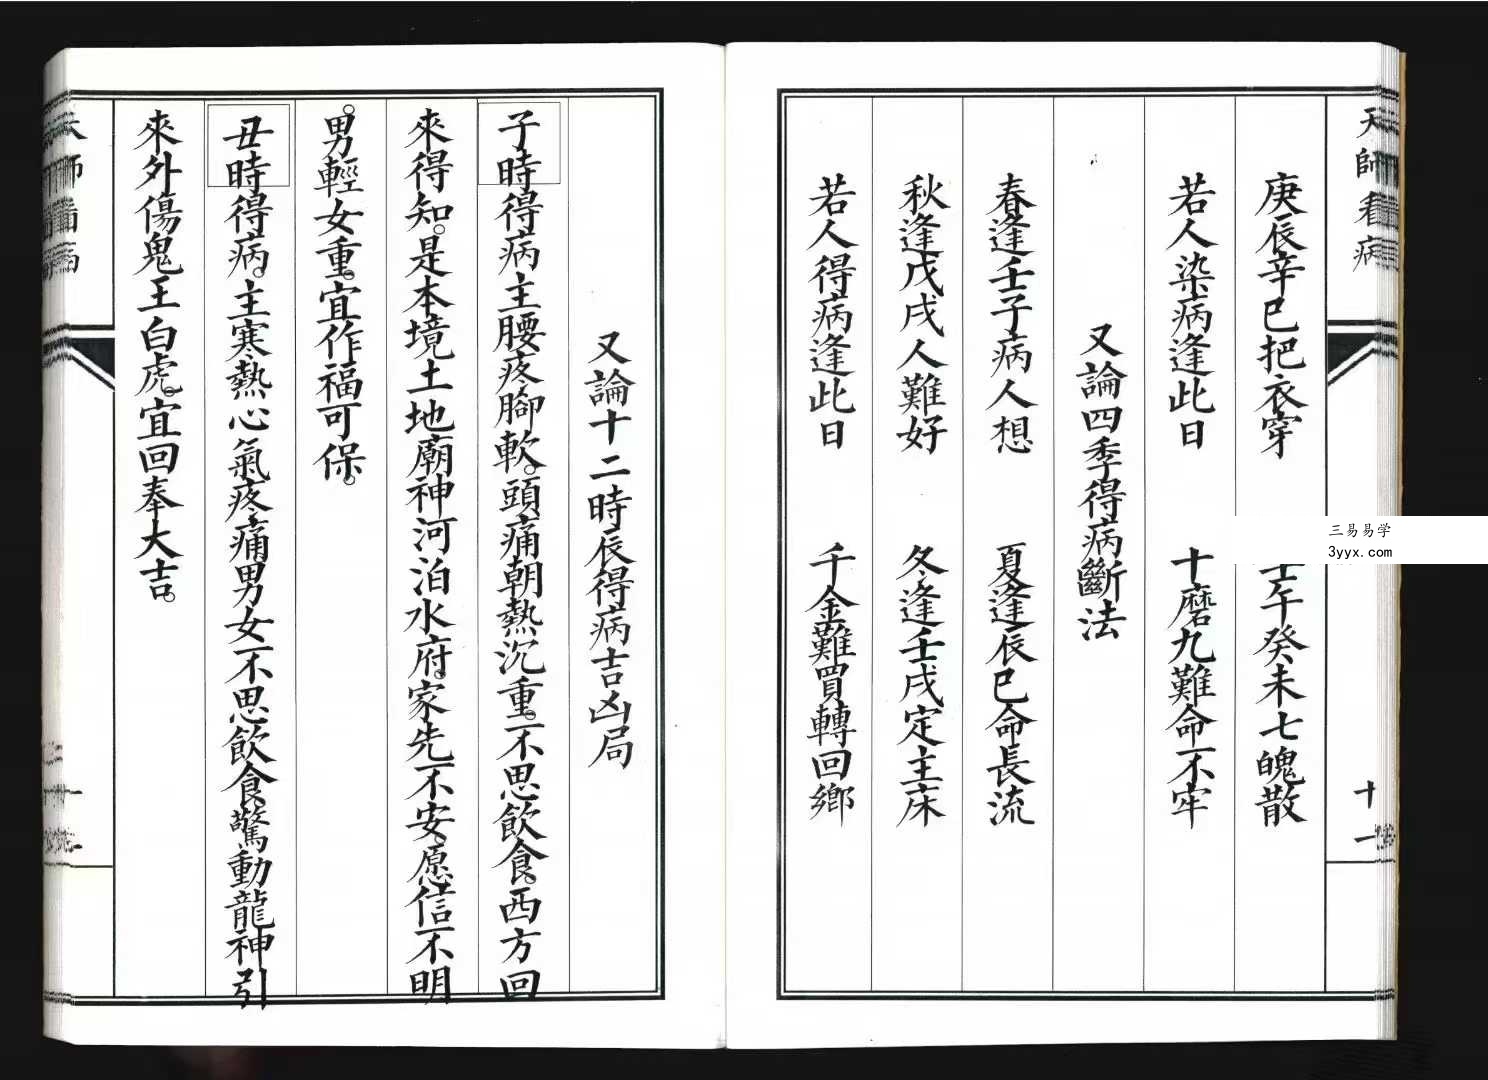 天師看病
十一
庚辰辛巳把衣穿 壬午癸未七魄散
若人染病逢此日 十磨九難命不牢
又論四季得病斷法
春逢壬子病人想 夏逢辰巳命長流
秋逢戊戌人難好 冬逢壬戌定主床
若人得病逢此日 千金難買轉回鄉
又論十二時辰得病吉凶局
子時得病主腰疼腳軟。頭痛朝熱沉重。不思飲食。西方回
來得知。是本境土地廟神河泊水府。家先不安。愿信不明
。男輕女重。宜作福可保。
丑時得病。主寒熱心氣疼痛男女不思飲食驚動龍神引
來外傷鬼王白虎。宜回奉大吉。
三易易学
3yyx.com